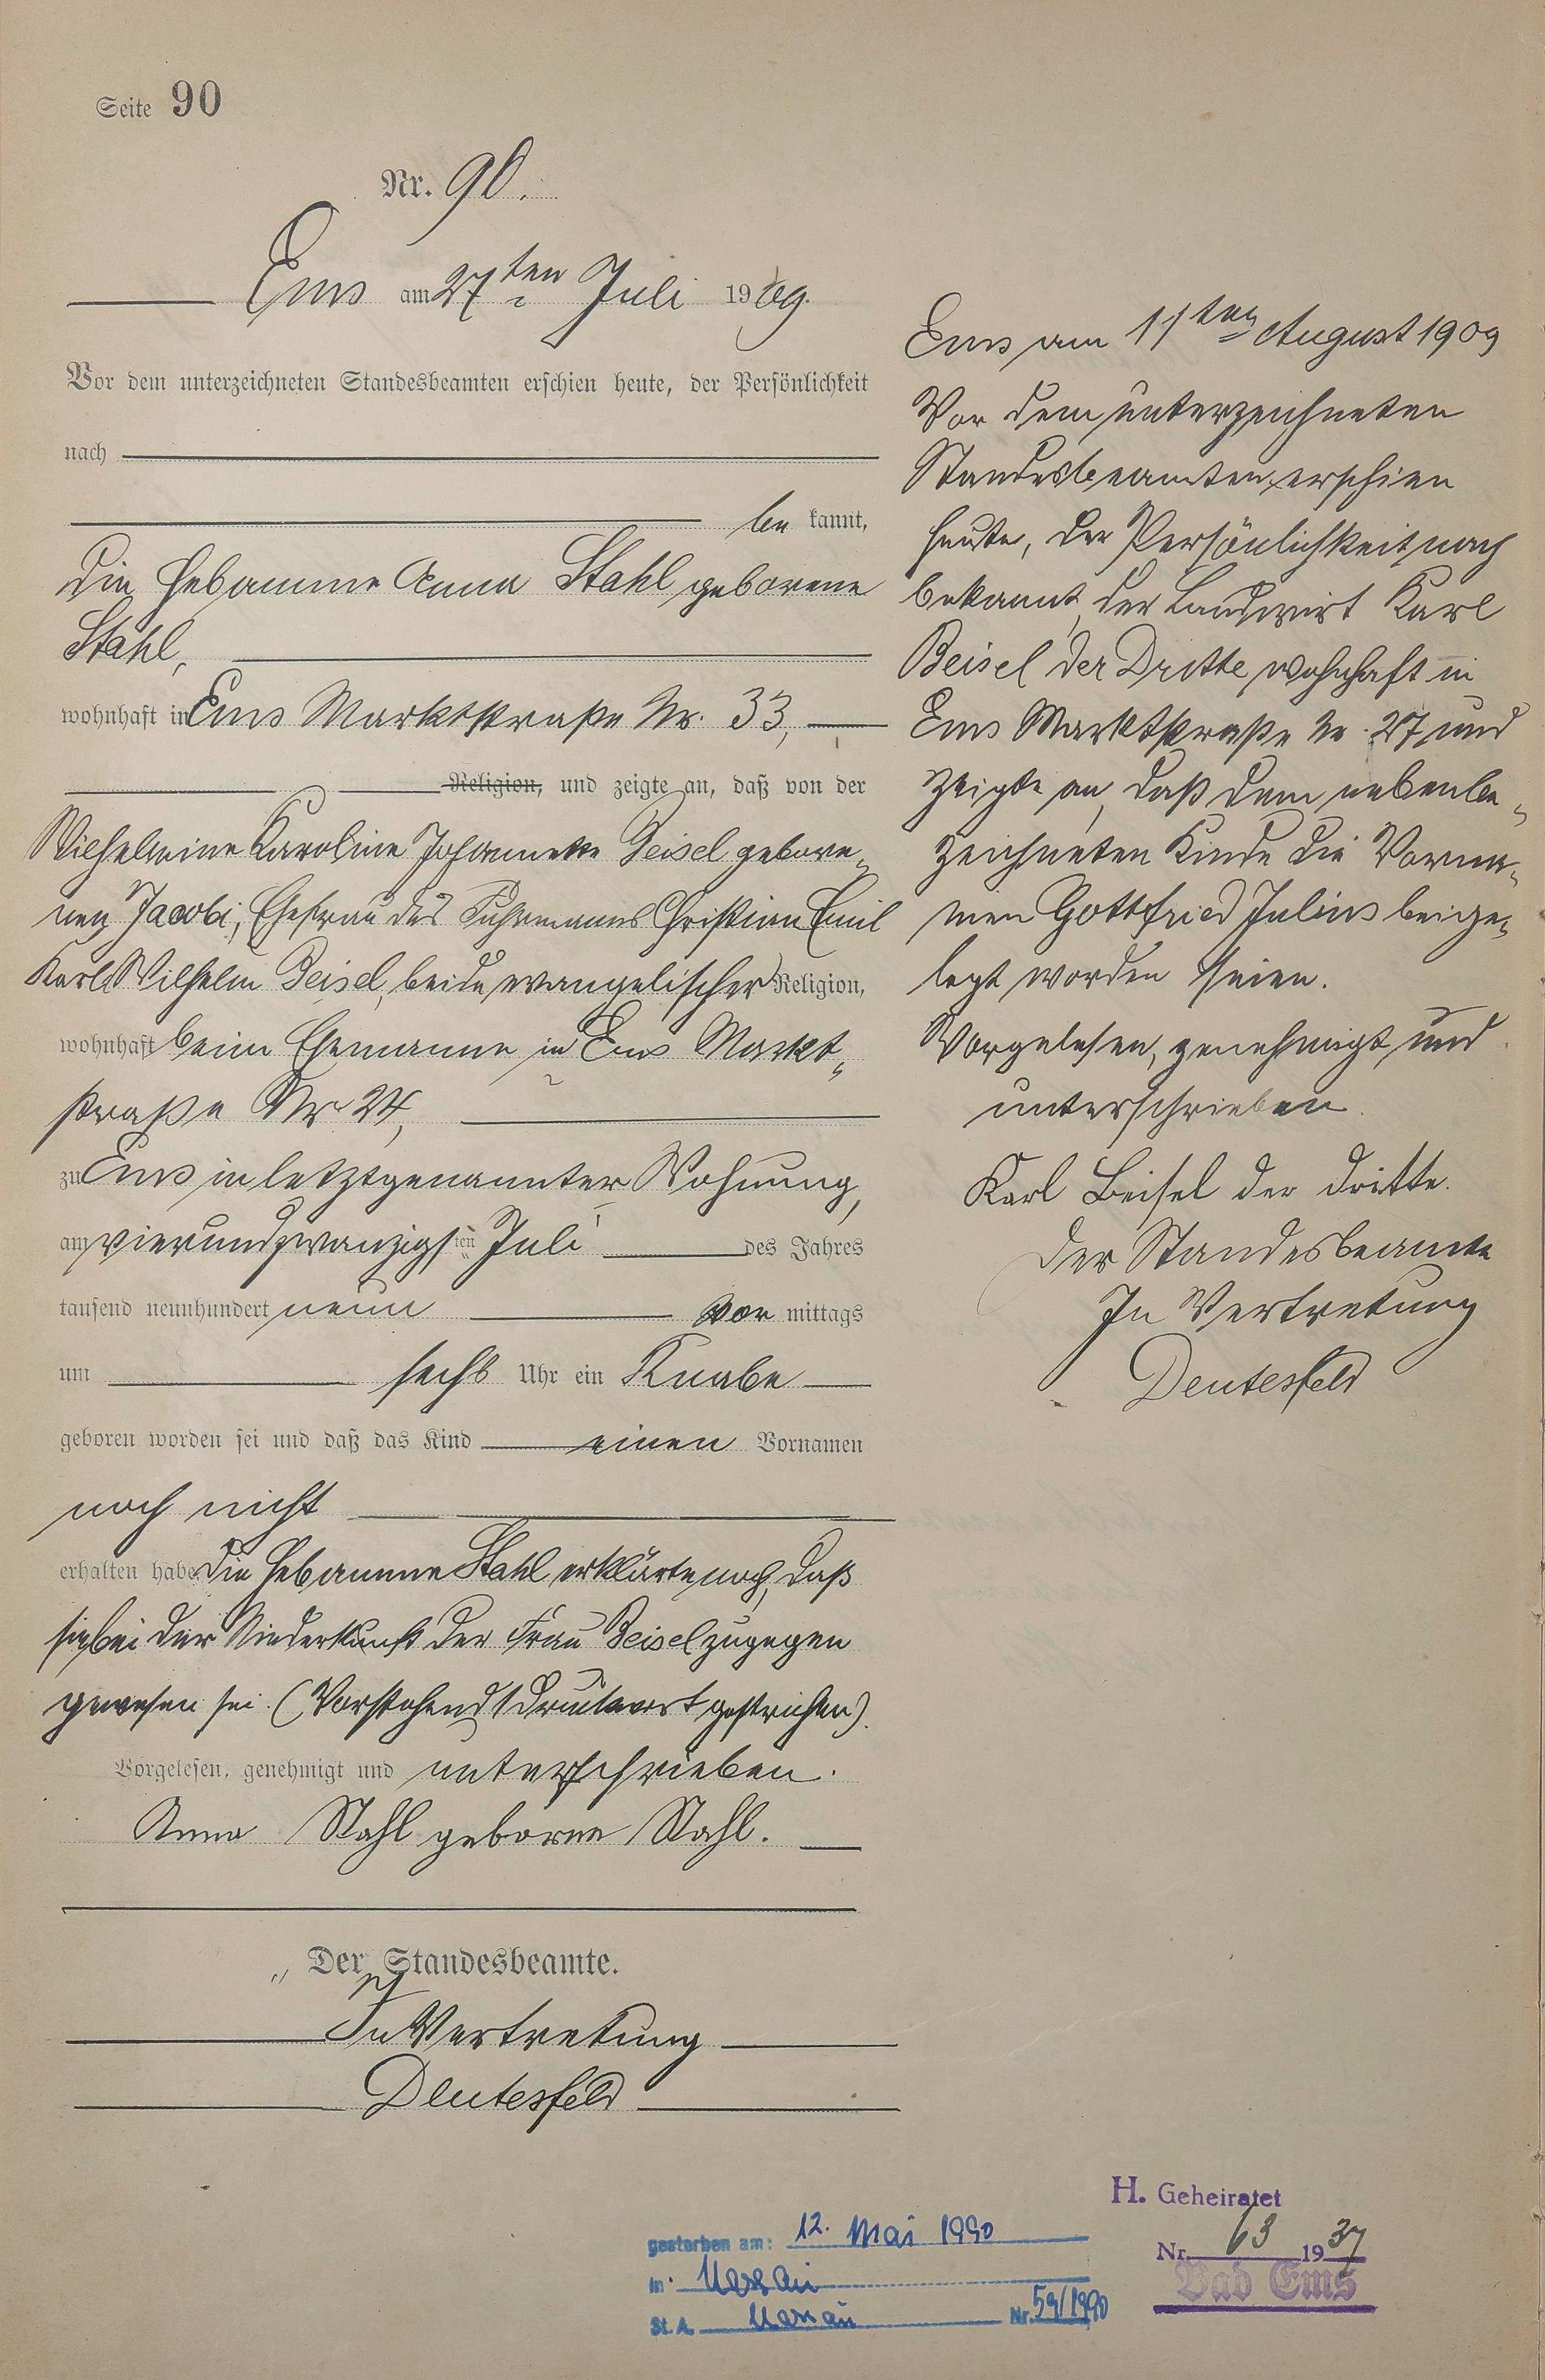 Seite 90
Nr. 90.
Ems am 27ten Juli 1909.
Vor dem unterzeichneten Standesbeamten erschien heute, der Persönlichkeit
nach
be kannt,
die Hebamme Anna Stahl geborene
Stahl,
wohnhaft in Ems Marktstraße Nr. 33,
Religion, und zeigte an, daß von der
Wilhelmine Karoline Johannette Beisel gebore-
nen Jacobi, Ehefrau des Fuhrmanns Christian Emil
Karl Wilhelm Beisel, beide evangelischer Religion,
wohnhaft beim Ehemanne in Ems Markt-
straße Nr. 24,
zu Ems in letztgenannter Wohnung,
am vierundzwanzigsten Juli des Jahres
tausend neunhundert neun vor mittags
um sechs Uhr ein Knabe
geboren worden sei und daß das Kind einen Vornamen
noch nicht
erhalten habe. Die Hebamme Stahl erklärte noch, daß
sie bei der Niederkunft der Frau Beisel zugegen
gewesen sei. (Vorstehend 1 Druckwort gestrichen).
Vorgelesen, genehmigt und unterschrieben.
Anna Stahl geborne Stahl.
Der Standesbeamte.
In Vertretung
Deutesfeld
Ems am 11ten August 1909
Vor dem unterzeichneten
Standesbeamten erschien
heute, der Persönlichkeit nach
bekannt, der Landwirt Karl
Beisel der Dritte, wohnhaft in
Ems Marktstraße Nr. 27, und
zeigte an, daß dem nebenbe-
zeichneten Kinde die Vorna-
men Gottfried Julius beige-
legt worden seien.
Vorgelesen, genehmigt und
unterschrieben.
Karl Beisel der dritte.
Der Standesbeamte
In Vertretung
Deutesfeld
H. Geheiratet
Nr. 63 1937
Bad Ems
gestorben am: 12. Mai 1990
in: Nassau
St. A. Nassau Nr. 59/1990